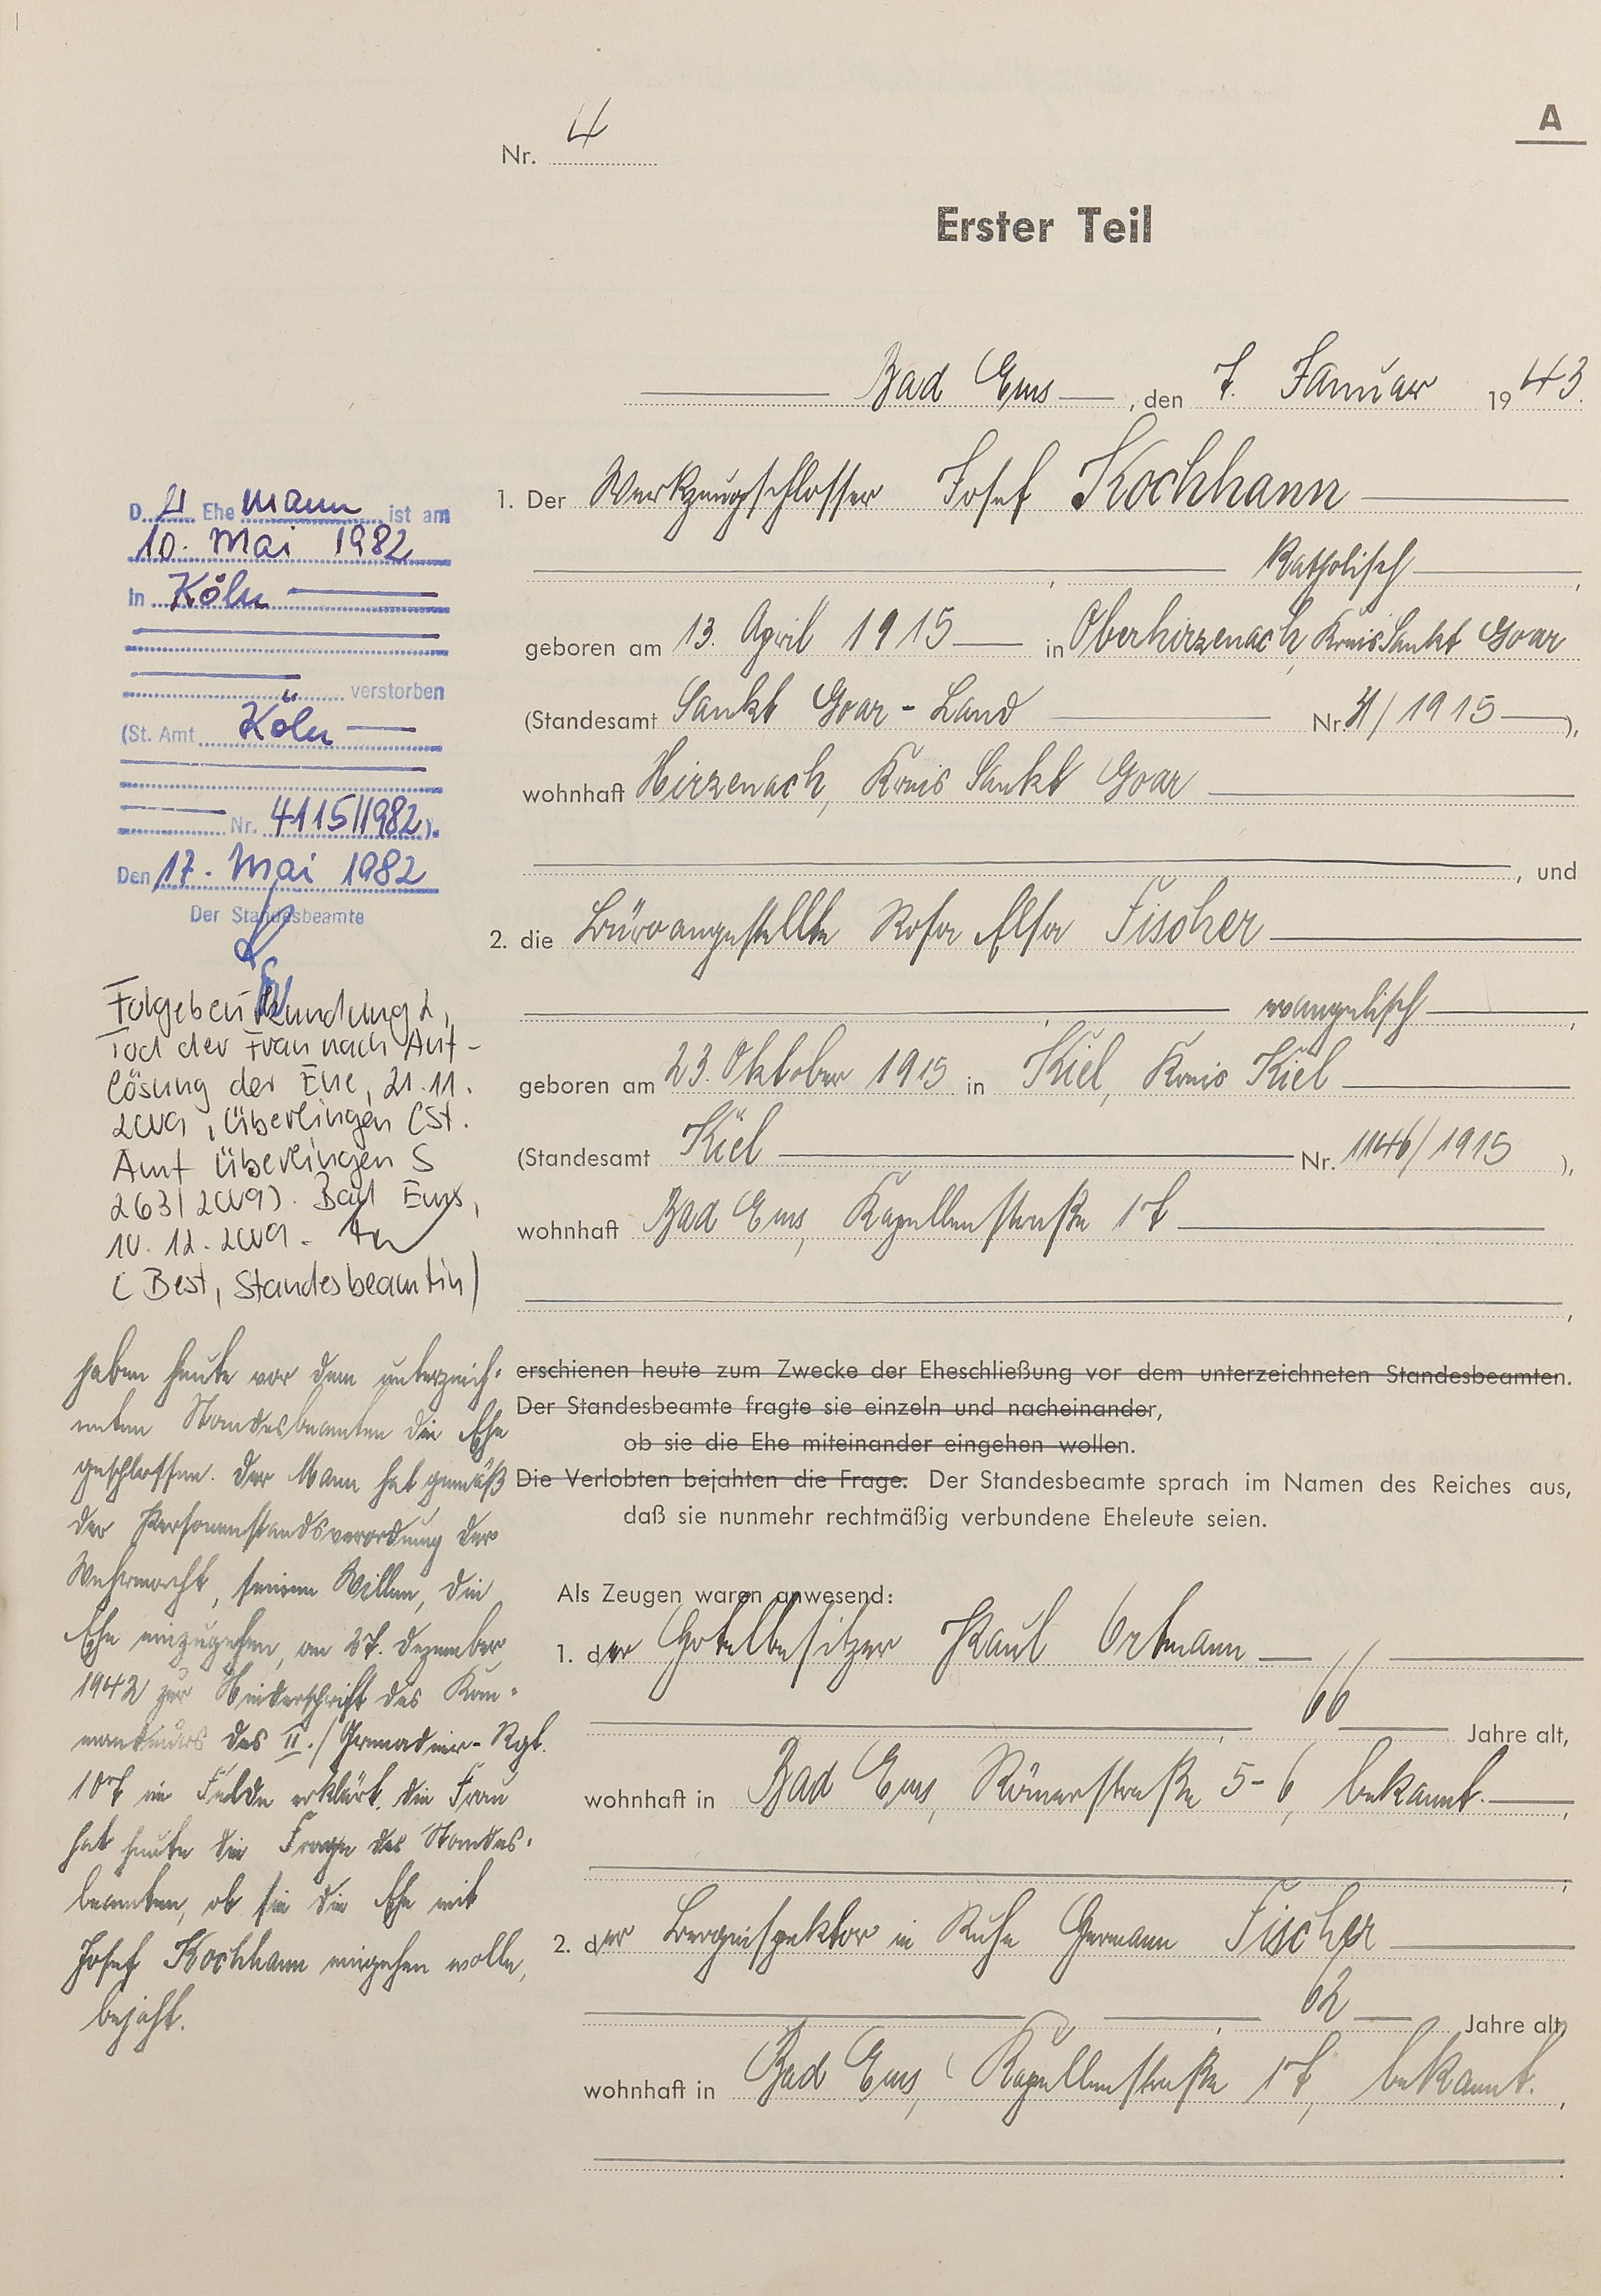 A
Nr. 4
Erster Teil
Bad Ems, den 7. Januar 1943.
1. Der Werkzeugschlosser Josef Kochhann
, katholisch,
geboren am 13. April 1915 in Oberhirzenach, Kreis Sankt Goar
(Standesamt Sankt Goar-Land Nr. /1915),
wohnhaft Hirzenach, Kreis Sankt Goar
, und
2. die Büroangestellte Rosa Elsa Fischer
, evangelisch,
geboren am 23. Oktober 1915 in Kiel, Kreis Kiel
(Standesamt Kiel Nr. 1146/1915),
wohnhaft Bad Ems, Kapellenstraße 17
,
erschienen heute zum Zwecke der Eheschließung vor dem unterzeichneten Standesbeamten.
Der Standesbeamte fragte sie einzeln und nacheinander,
ob sie die Ehe miteinander eingehen wollen.
Die Verlobten bejahten die Frage. Der Standesbeamte sprach im Namen des Reiches aus,
daß sie nunmehr rechtmäßig verbundene Eheleute seien.
Als Zeugen waren anwesend:
1. der Hotelbesitzer Paul Ortmann
, 66 Jahre alt,
wohnhaft in Bad Ems, Römerstraße 5-6, bekannt.,
;
2. der Berginspektor in Ruhe Hermann Fischer
, 62 Jahre alt,
wohnhaft in Bad Ems, Kapellenstraße 17, bekannt.,
.
D. er Ehemann ist am
10. Mai 1982
in Köln
verstorben
(St. Amt Köln
Nr. 4115/1982).
Den 17. Mai 1982
Der Standesbeamte
Folgebeurkundung 2,
Tod der Frau nach Auf-
lösung der Ehe, 21.11.
2009, Überlingen (St.
Amt Überlingen S
263/2009). Bad Ems,
10.12.2009.
(Best, Standesbeamtin)
haben heute vor dem unterzeich-
neten Standesbeamten die Ehe
geschlossen. Der Mann hat gemäß
der Personenstandsverordnung der
Wehrmacht, seinen Willen, die
Ehe einzugehen, am 27. Dezember
1942 zur Niederschrift des Kom-
mandeurs des II./Grenadier-Rgt.
107 im Felde erklärt. Die Frau
hat heute die Frage des Standes-
beamten, ob sie die Ehe mit
Josef Kochhann eingehen wolle,
bejaht.